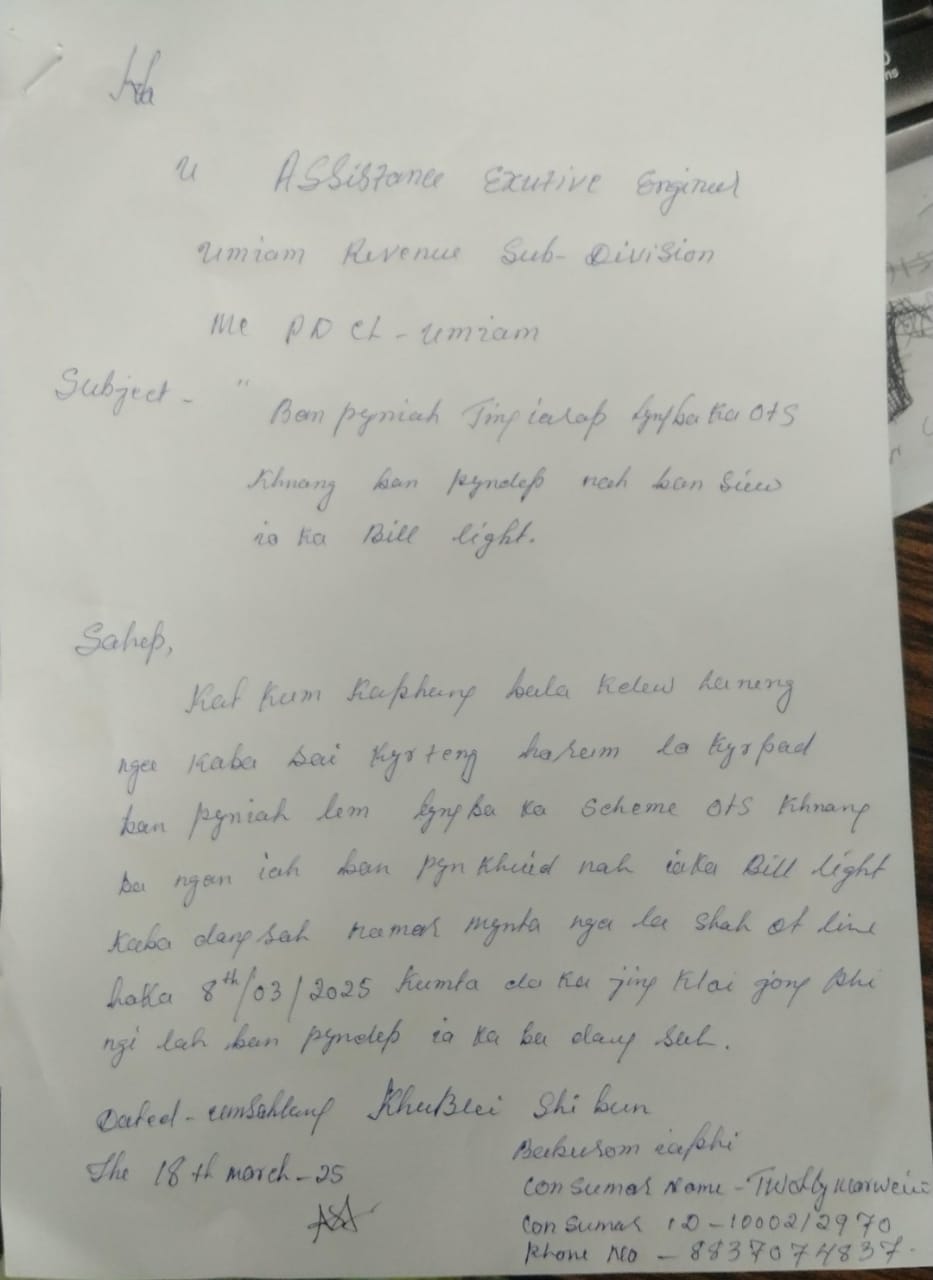 Ha
U Assistance Exutive Engineer
Umiam Revenue Sub-Division
Me PDCL - Umiam
Subject - " Ban pyniah Jingiarap lyngba ka OtS
Khnang ban pyndep noh ban Siew
ia ka Bill light.
Sahep,
Kat kum kaphang bala kdew haneng
nga kaba Soi kyrteng harum la kyrpad
ban pyniah lem lyngba ka Scheme OtS Khnang
ba ngan iah ban pyn khuid noh iaka Bill light
kaba dang sah namar mynta nga la shah ot line
haka 8th/03/2025 kumta da ka jing kloi jong phi
ngi lah ban pyndep ia ka ba dang sah.
Dated - umsahlang Khublei Shi bun
The 18th march - 25
Bakurom iaphi
Consumar Name -
Consumar ID - 1000212970
Phone No - 8837074837.